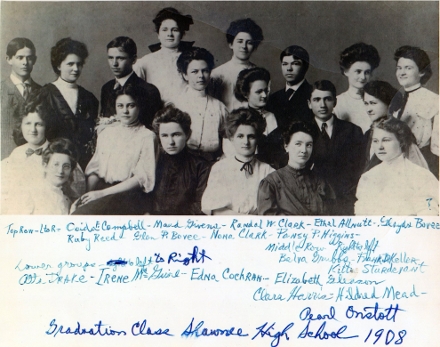 Top Row - L to R - Ceidel Campbell - Maud Givens - Randal W. Clark - Ethel Allnutt - Gladys Bovee
Ruby Reed - Glen P. Bovee - Nona Clark - Pansy P. Higgins -
Middle Row Right to left
Belva Grubbs - Floyd McKellar
Kittie Sturdevant
Lower group - left to Right
Otis Drake - Irene McGuire - Edna Cochran - Elizabeth Gleason
Clara Harris - Hildred Mead -
Pearl Onstott
Graduation Class Shawnee High School 1908